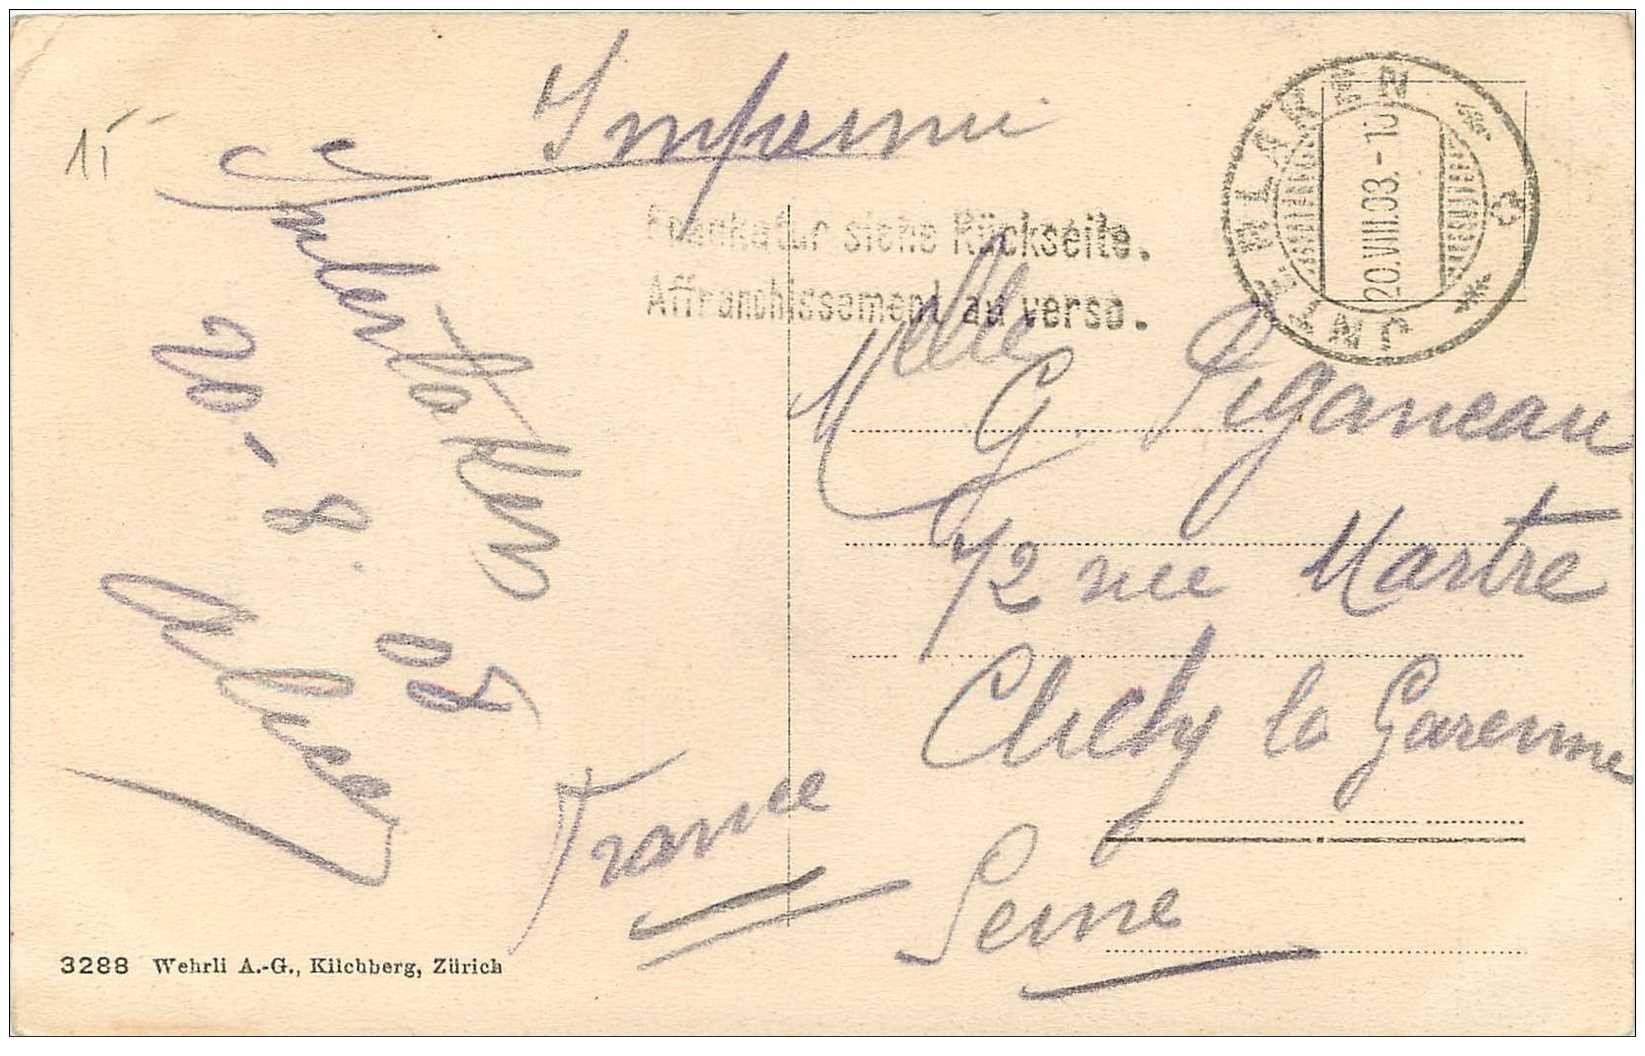 15
Imprimé
Frankatur siehe Rückseite.
Affranchissement au verso.
INTERLAKEN
20.VIII.08.-10
Interlaken
20-8.08
Alice
Melle
G Piganeau
72 rue Martre
Clichy la Garenne
Seine
France
3288 Wehrli A.-G., Kilchberg, Zürich